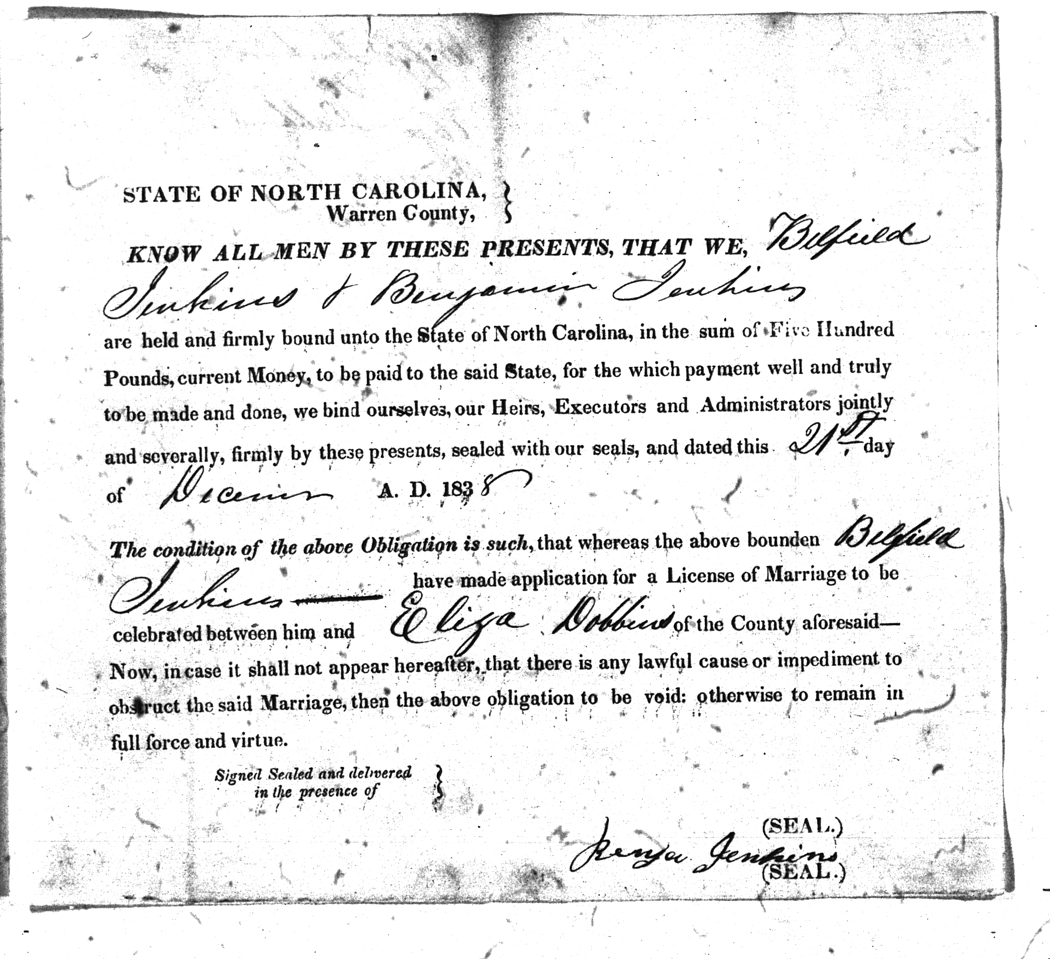 STATE OF NORTH CAROLINA,
Warren County,
KNOW ALL MEN BY THESE PRESENTS, THAT WE, Belfield
Jenkins & Benjamin Jenkins
are held and firmly bound unto the State of North Carolina, in the sum of Five Hundred
Pounds, current Money, to be paid to the said State, for the which payment well and truly
to be made and done, we bind ourselves, our Heirs, Executors and Administrators jointly
and severally, firmly by these presents, sealed with our seals, and dated this 21st day
of A. D. 1838
The condition of the above Obligation is such, that whereas the above bounden Belfield
Jenkins have made application for a License of Marriage to be
celebrated between him and Eliza Dobbins of the County aforesaid—
Now, in case it shall not appear hereafter, that there is any lawful cause or impediment to
obstruct the said Marriage, then the above obligation to be void: otherwise to remain in
full force and virtue.
Signed Sealed and delivered
in the presence of
(SEAL.)
Benja Jenkins
(SEAL.)